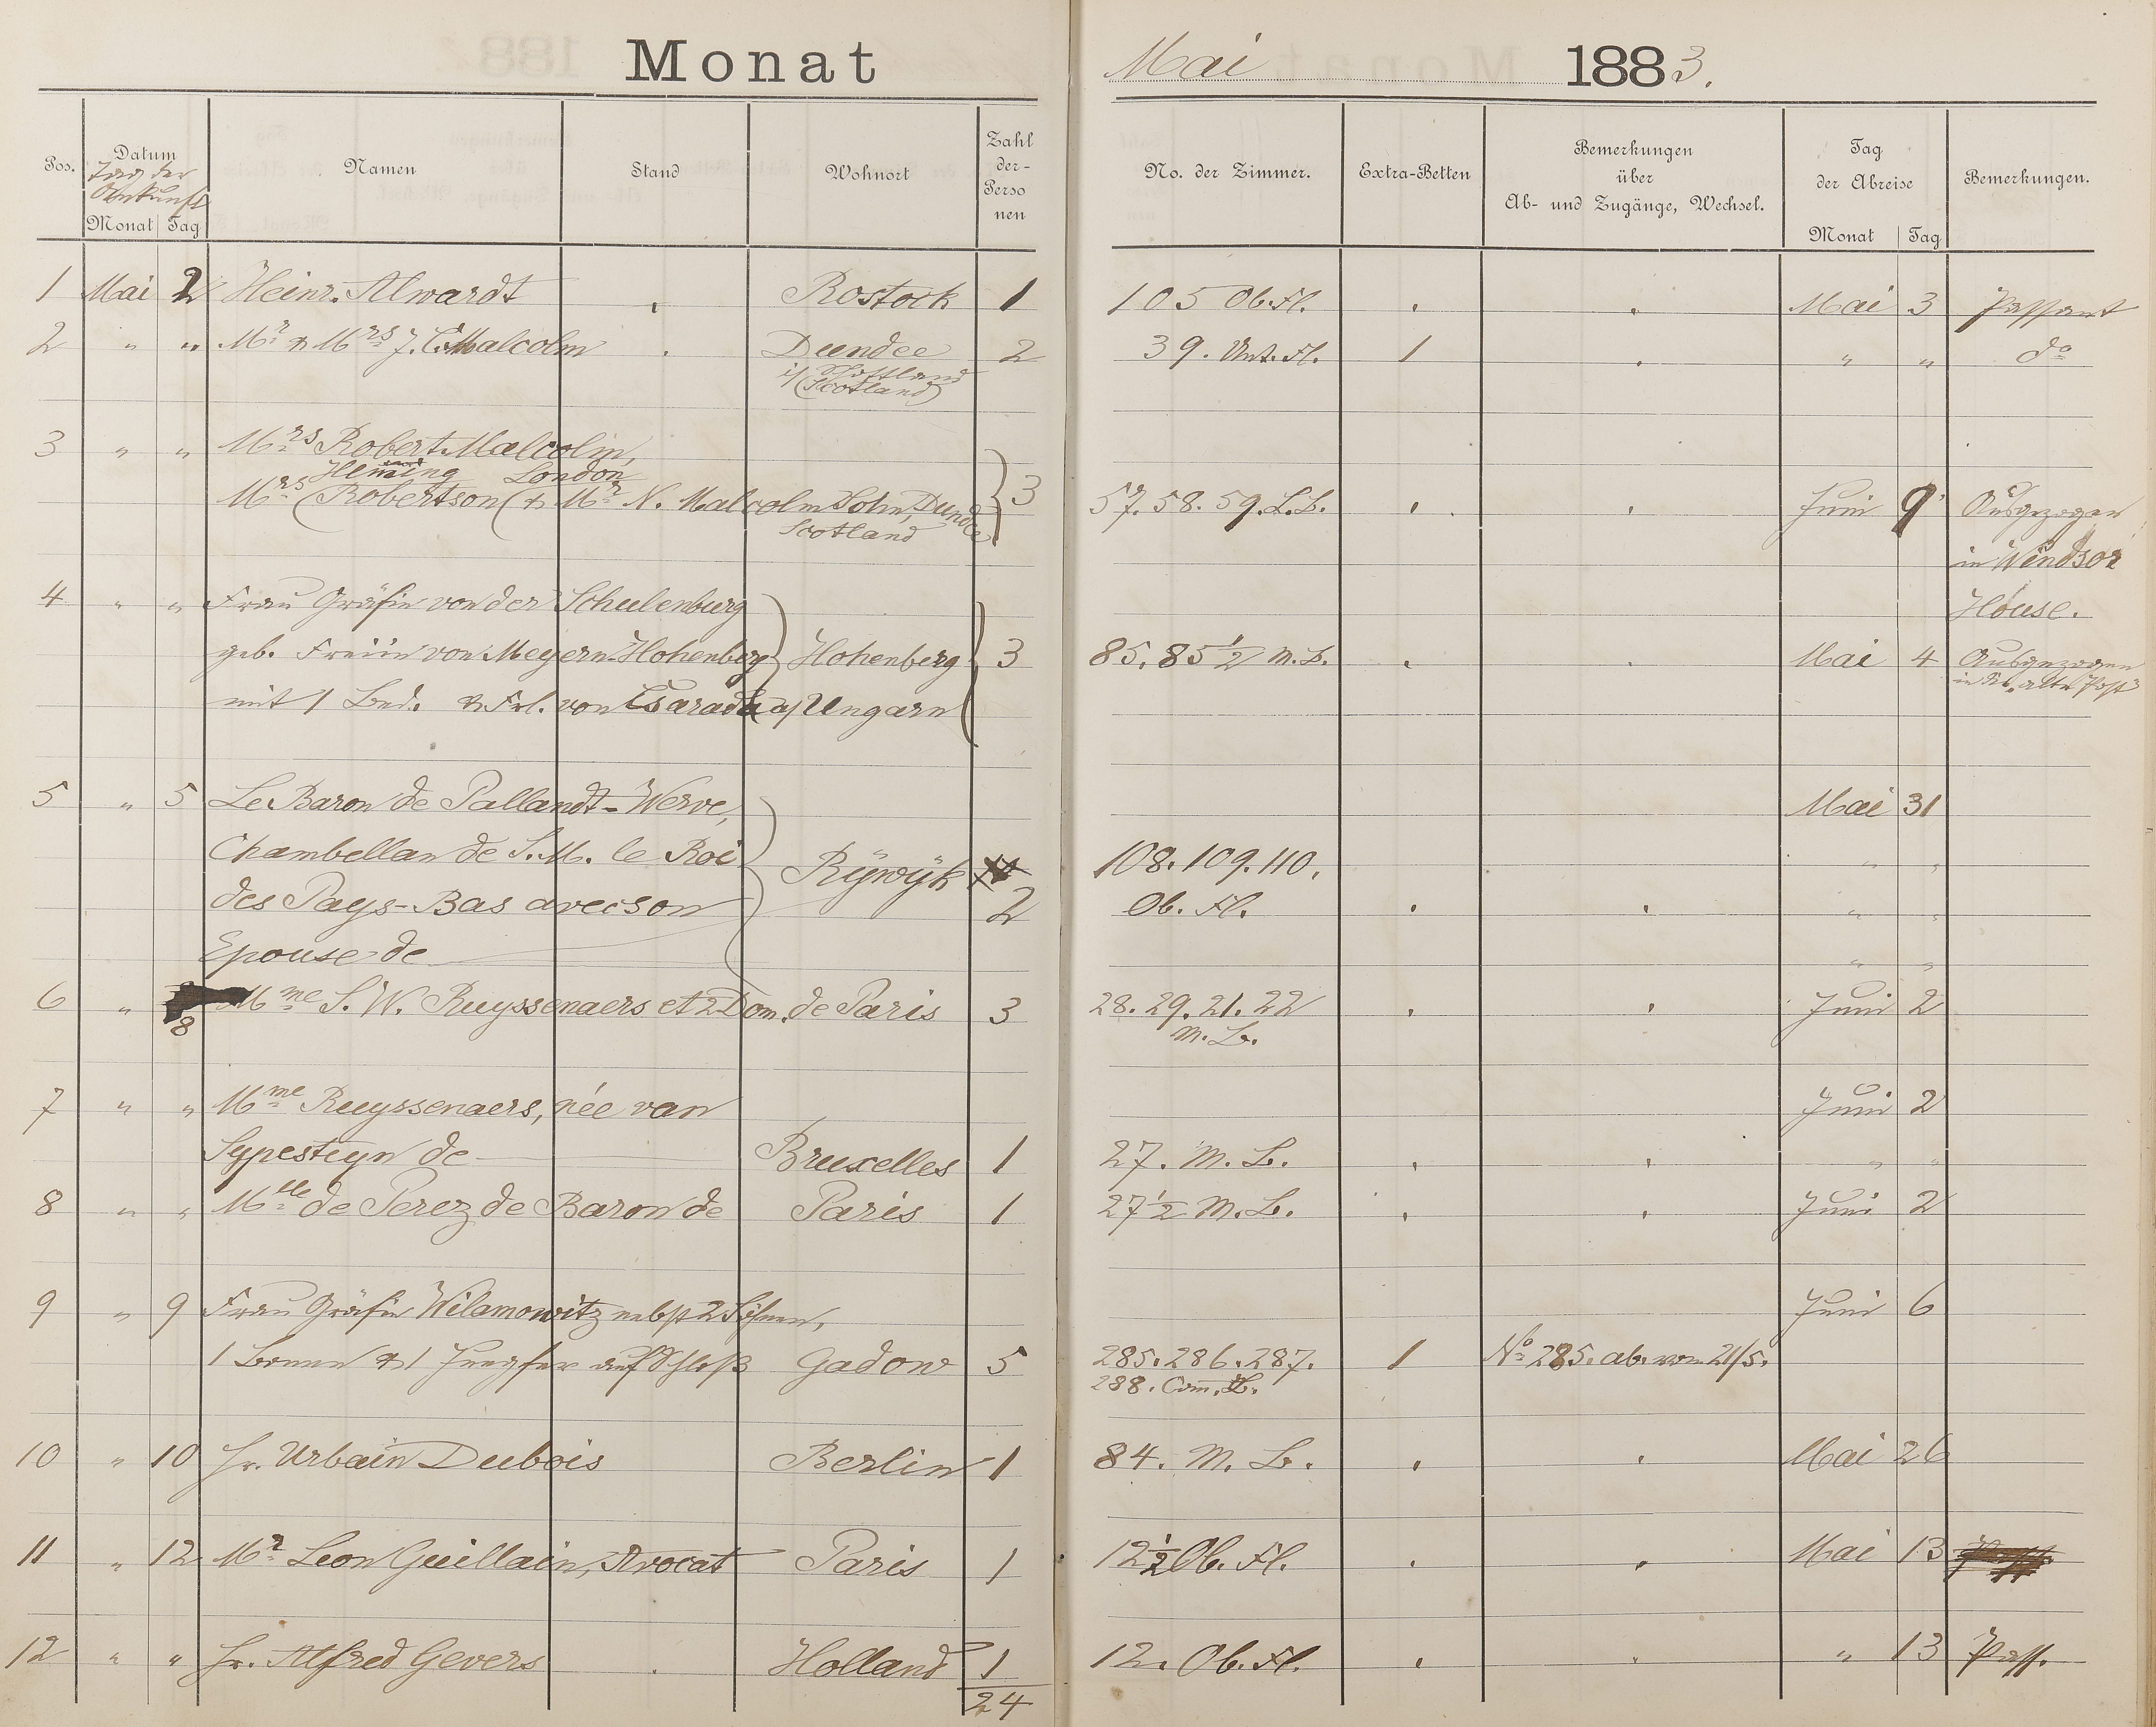 Monat Mai 1883.
Pos. Datum Tag der Ankunft Monat Tag Namen Stand Wohnort Zahl der Personen No. der Zimmer. Extra-Betten Bemerkungen über Ab- und Zugänge, Wechsel. Tag der Abreise Monat Tag Bemerkungen.
1 Mai 2 Heinr. Alwardt Rostock 1 105 Ob. Fl. Mai 3 Passant
2 " " Mr. & Mrs J. C. Malcolm Dundee 2 39. Unt. Fl. 1 " " do
i/ Schottland
(Scotland)
3 " " Mrs Robert Malcolm,
Heming London
Mrs (Robertson (& Mr N. Malcolm Sohn, Dundee 3 57. 58. 59. L.B. Juni 9 Ausgezogen
Scotland
in Windsor
4 " " Frau Gräfin von der Schulenburg House.
geb. Freiin von Meyern-Hohenberg Hohenberg 3 85. 85 1/2 M. B. Mai 4 Ausgezogen
in die "alte Post"
mit 1 Bed. & Frl. von Csarada a/ Ungarn
5 " 5 Le Baron de Pallandt-Werve, Mai 31
Chambellan de S. M. le Roi Rijwijk 108. 109. 110. " "
des Pays-Bas avec son 2 Ob. Fl. " "
Epouse de " "
6 " 8 Mme S. W. Ruyssenaers et 2 Dom. de Paris 3 28. 29. 21. 22 Juni 2
M. B.
7 " " Mme Ruyssenaers, née van Juni 2
Sypesteyn de Bruxelles 1 27. M. B. " "
8 " " Mlle de Perez de Baron de Paris 1 27 1/2 M. B. Juni 2
9 " 9 Frau Gräfin Wilamowitz nebst 2 Söhnen, Juni 6
1 Bonne & 1 Jungfer auf Schloß Gadow 5 285. 286. 287. 1 No 285. ab. vom 21/5.
288. Com. B.
10 " 10 Hr. Urbain Dubois Berlin 1 84. M. B. Mai 26
11 " 12 Mr Leon Guillain, Avocat Paris 1 12 1/2 Ob. Fl. Mai 13
12 " " Hr. Alfred Gevers Holland 1 12. Ob. Fl. " 13 Pass.
24